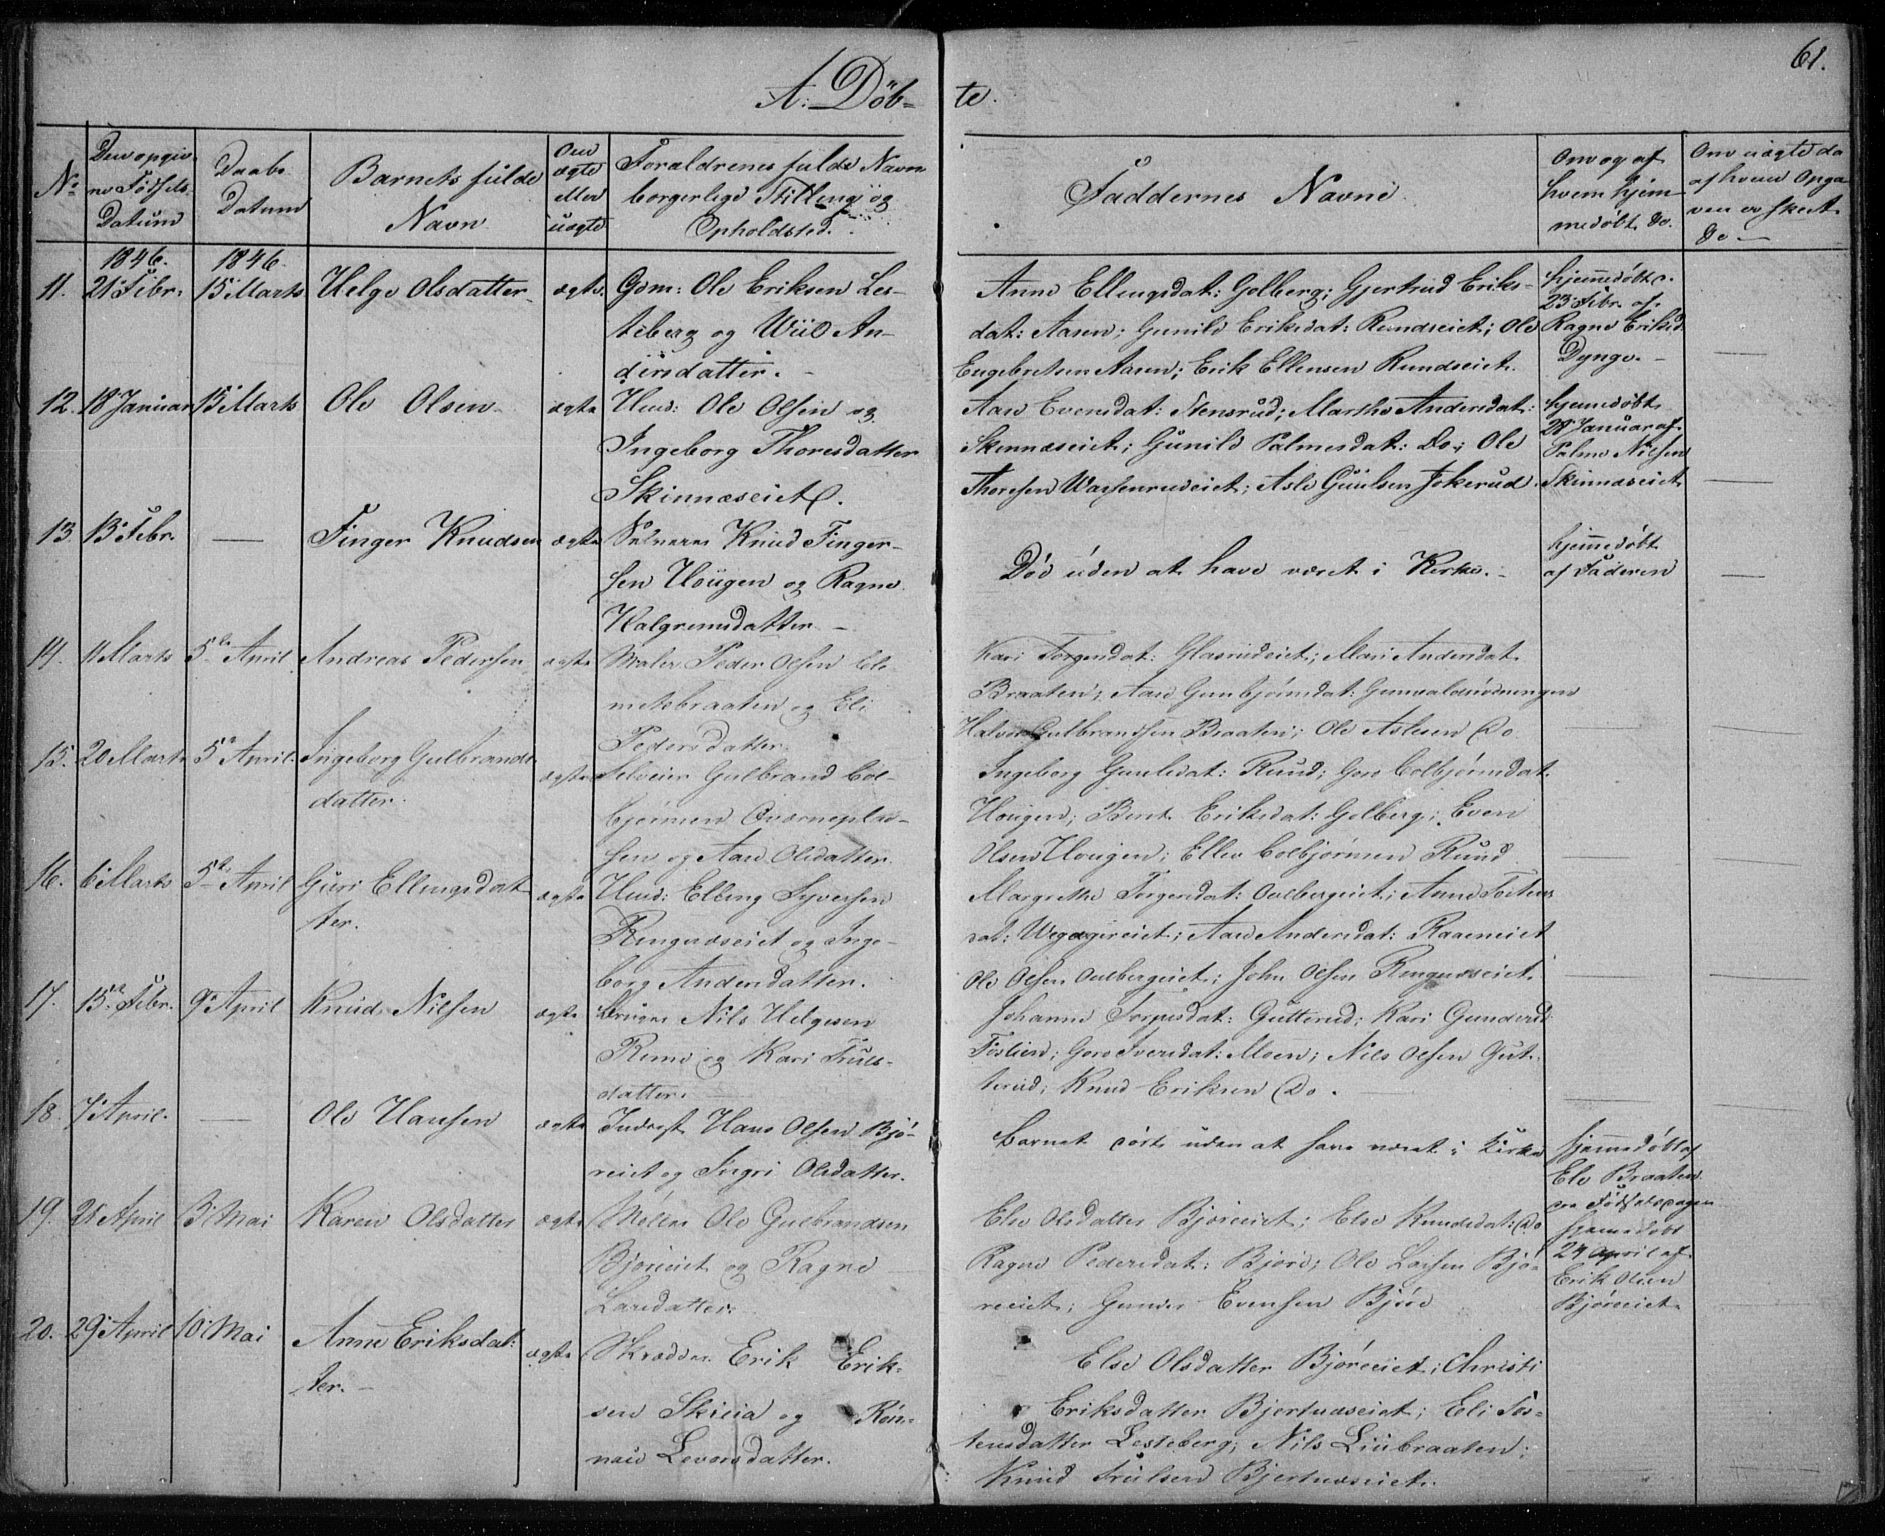 61.
A. Döb- te.
No.
Den opgiv-
ne Födsels
Datum
Daabs
Datum
Barnets fulde
Navn
Om
ægte
eller
uægte
Forældrenes fulde Navn
borgerlige Stilling og
Opholdsted.
Faddernes Navne
Om og af
hvem hjem
medöbt Do.
Om uægte da
af hvem Opga
ven er skeet
Do —
1846. 1846.
11. 21 Febr. 15 Marts Helge Olsdatter ægte
Gdm: Ole Eriksen Les-
teberg og Wiil An-
dersdatter.
Anne Ellingsdat: Golberg; Gjertrud Eriks-
dat: Aasen; Gunild Eriksdat: Rundseiet; Ole
Engebretsen Aasen; Erik Ellensen Rundseiet.
hjemmedöbt
23 Febr. af
Ragne Eriksd.
Dynge.
12. 18 Januar 15 Marts Ole Olsen ægte
Huus: Ole Olsen og
Ingeborg Thoresdatter
Skinnæseiet.
Aase Evensdat: Stensrud; Marthe Andersdat:
Skinnæseiet; Gunild Palmesdat: Do; Ole
Thoresen Warsenrudeiet; Asle Guulsen Jokerud
hjemmedöbt
20 Januar af
Palme Nilsen
Skinnæseiet
13 13 Febr. — Finger Knudsen ægte
Selveier Knud Finger-
sen Hougen og Ragne
Halgrimsdatter
Död uden at have været i Kirke.
hjemmedöbt
af Faderen
14. 11 Marts 5te April Andreas Pedersen ægte
Maler Peder Olsen
metsbraaten og Eli
Pedersdatter
Kari Torgersdat: Glasrudeiet; Mari Andersdat
Braaten; Aase Gunbjörnsdat: Gunvaldsrödningen
Halvor Gulbrandsen Braaten; Ole Aslesen Do
15. 20 Marts 5te April Ingeborg Gulbrands
datter. ægte
Selveier Gulbrand Col-
björnsen Qværneplas-
sen og Aase Olsdatter.
Ingeborg Guulsdat: Ruud; Goro Colbjörnsdat.
Hougen; Berit Eriksdat: Golberg; Even
Olsen Hougen; Ellev Colbjörnsen Ruud
16. 6 Marts 5te April Guri Ellingsdat
ter. ægte
Huus: Elling Syversen
Ringnæseiet og Inge-
borg Andersdatter.
Margrethe Torgersdat: Oulbergeiet; Anne Tostens
dat: Aase Andersdat: Raaeneiet
Ole Olsen Oulbergeiet; John Olsen Ringnæseiet.
17. 15de Febr. 9 April Knud Nilsen ægte
Bruger Nils Helgesen
Reme og Kari Truls-
datter.
Johanne Torpesdat: Gutterud; Kari Gundersd:
Goro Iversdat: Moen; Nils Olsen Gut-
terud; Knud Eriksen Do.
18. 7 April. — Ole Hansen ægte
Inderst Hans Olsen Bjö-
reiet og Ingri Olsdatter.
Barnet döde uden at have været i Kirke
hjemmedöbt af
Elv Braaten
paa Födselsdagen
19. 21 April 3 Mai Karen Olsdatter ægte
Möller Ole Gulbrandsen
Björeeiet og Ragne
Larsdatter.
Else Olsdatter Björeeiet; Else Knudsdat: Do
Ragne Pedersdat: Björe; Ole Larsen Bjö-
reeiet; Gunder Evensen Björe
hjemmedöbt
24 April af
Erik Olsen
Björeeiet
20. 29 April 10 Mai Anne Eriksdat-
ter. ægte
Skrædder Erik Erik-
sen Skieia og Rön-
nau Levorsdatter.
Else Olsdatter Björeeiet; Christi
Eriksdatter Bjertnæseiet; Eli Tos-
tensdatter Lesteberg; Nils Liubraaten;
Knud Trulsen Bjertnæseiet.